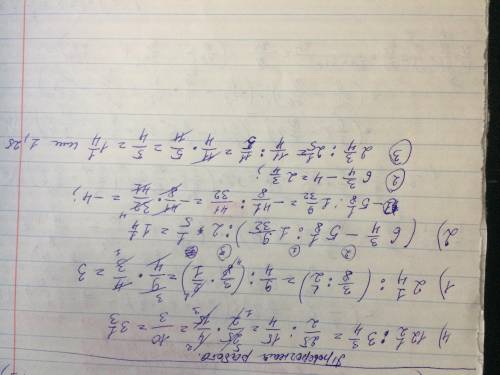 Проверочная работа.
4) 12 1/2 : 3 3/4 = 25/2 : 15/4 = 25/2 · 4/15 = 10/3 = 3 1/3
1) 2 1/4 : (3/8 : 1/2) = 9/4 : (3/8 · 2/1) = 9/4 · 4/3 = 3
2) (6 3/4 - 5 1/8 : 1 9/32) : 2 1/5 = 1 1/4
-5 1/8 : 1 9/32 = -41/8 : 41/32 = -41/8 · 32/41 = -4;
2) 6 3/4 - 4 = 2 3/4;
3) 2 3/4 : 2 1/5 = 11/4 : 11/5 = 11/4 · 5/11 = 5/4 = 1 1/4 или 1,25